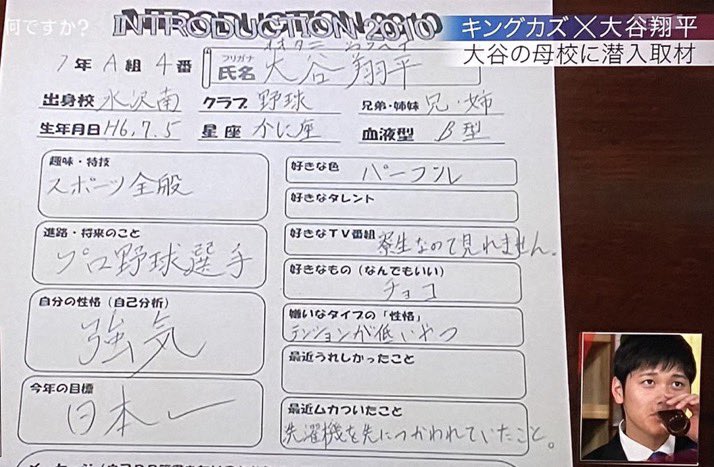 何ですか?
INTRODUCTION 2010
キングカズ×大谷翔平
大谷の母校に潜入取材
1年 A組 4番
フリガナ
氏名 大谷 翔平
出身校 水沢南 クラブ 野球 兄弟・姉妹 兄・姉
生年月日 H6.7.5 星座 かに座 血液型 B型
趣味・特技
スポーツ全般
進路・将来のこと
プロ野球選手
自分の性格(自己分析)
強気
今年の目標
日本一
好きな色 パープル
好きなタレント
好きなTV番組 寮生なので見れません。
好きなもの(なんでもいい)
チョコ
嫌いなタイプの「性格」
テンションが低いやつ
最近うれしかったこと
最近ムカついたこと
洗濯機を先につかわれていたこと。